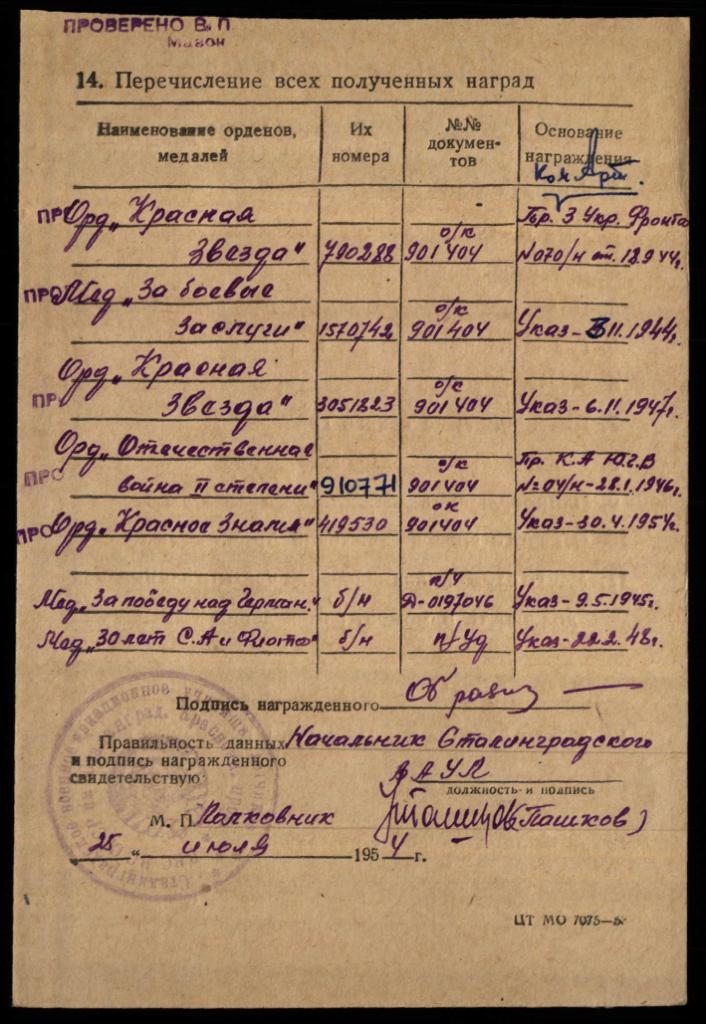 ПРОВЕРЕНО В. П.
14. Перечисление всех полученных наград
Наименование орденов, медалей
Их номера
№№ документов
Основание награждения
Ком Арт.
ПР Орд „Красная Пр. 3 Укр. Фронта
Звезда" 790288 о/к 901404 №070/н от 12.9.44г.
ПРО Мед „За боевые
Заслуги" 1570742 о/к 901404 Указ-3.11.1944г.
Орд „Красная
ПР Звезда" 3051823 о/к 901404 Указ-6.11.1947г.
Орд „Отечественная Пр. К.А Ю.Г.В
ПРО война II степени" 910771 о/к 901404 №04/н-28.1.1946г.
ПРО Орд „Красное Знамя" 419530 ок 901404 Указ-30.4.1954г.
Мед „За победу над Герман." б/н п/ч А-0197046 Указ-9.5.1945г.
Мед „30 лет С.А и Флота" б/н п/Уд Указ-22.2.48г.
Подпись награжденного
Правильность данных и подпись награжденного свидетельствую:
Начальник Сталинградского
ВАУЛ
должность и подпись
М. П. Полковник (Пашков)
„25" июля 1954 г.
ЦТ МО 7075—5